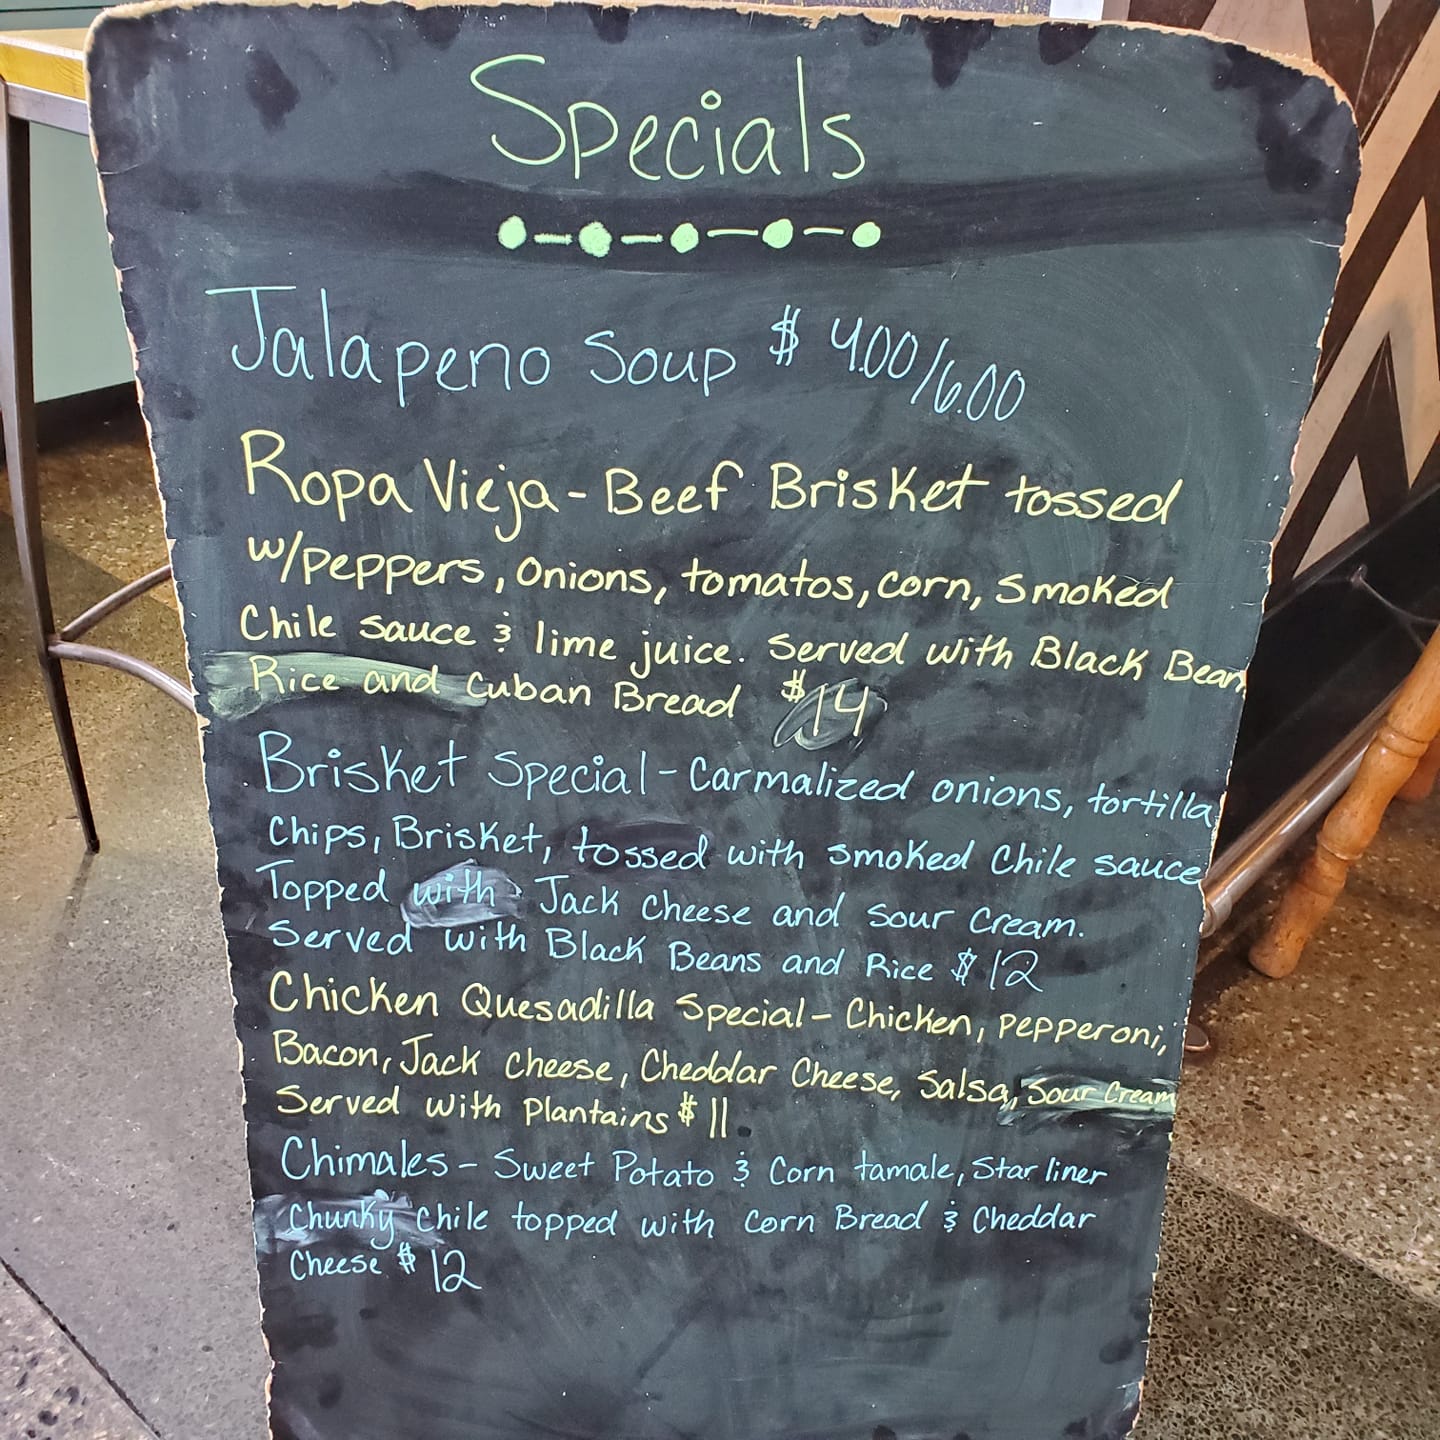 Specials
Jalapeno Soup $ 4.00/6.00
Ropa Vieja - Beef Brisket tossed
w/peppers, onions, tomatos, corn, smoked
Chile sauce & lime juice. Served with Black Bean,
Rice and Cuban Bread $14
Brisket Special - Carmalized onions, tortilla,
chips, Brisket, tossed with smoked chile sauce
Topped with Jack cheese and sour cream.
Served with Black Beans and Rice $12
Chicken Quesadilla Special - Chicken, pepperoni,
Bacon, Jack cheese, Cheddar Cheese, Salsa, Sour Cream
Served with Plantains $11
Chimales - Sweet Potato & Corn tamale, Star liner
Chunky chile topped with Corn Bread & Cheddar
Cheese $12